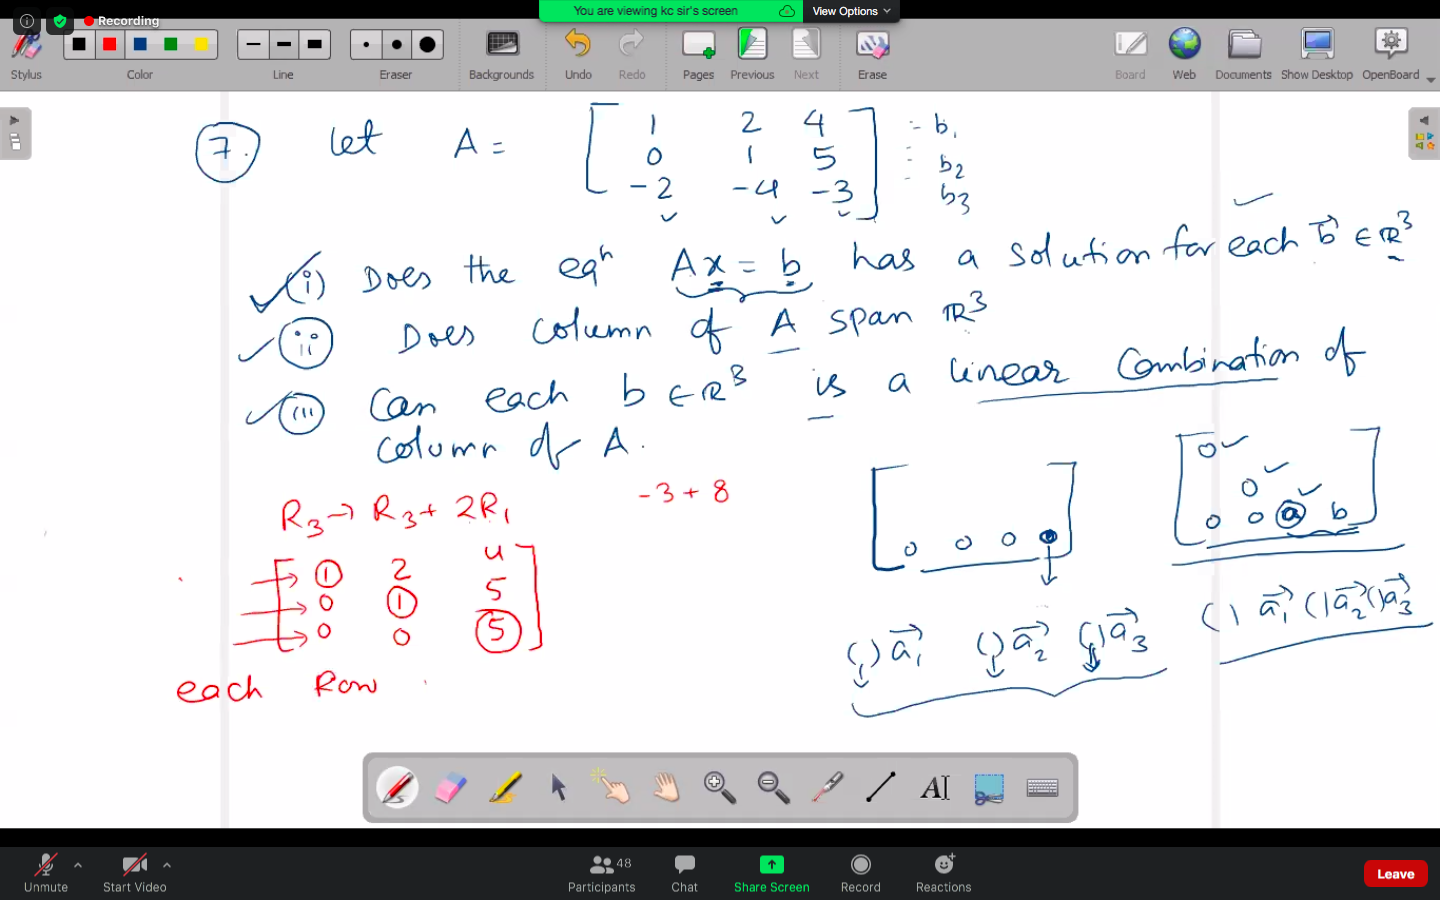 Recording
You are viewing kc sir's screen
View Options
Stylus
Color
Line
Eraser
Backgrounds
Undo
Redo
Pages
Previous
Next
Erase
Board
Web
Documents
Show Desktop
OpenBoard
7. Let A = [ 1 2 4 = b1
0 1 5 : b2
-2 -4 -3 ] b3
(i) Does the eqn Ax = b has a solution for each b⃗ ∈ ℝ³
(ii) Does column of A span ℝ³
(iii) Can each b ∈ ℝ³ is a linear combination of
column of A.
R3 → R3 + 2R1
-3 + 8
[ 1 2 4
0 1 5
0 0 5 ]
each Row
[ 0 0 0 ]
[ 0
0
0 0 a b ]
( ) a⃗1 ( ) a⃗2 ( ) a⃗3
( ) a⃗1 ( ) a⃗2 ( ) a⃗3
AI
Unmute
Start Video
48
Participants
Chat
Share Screen
Record
Reactions
Leave